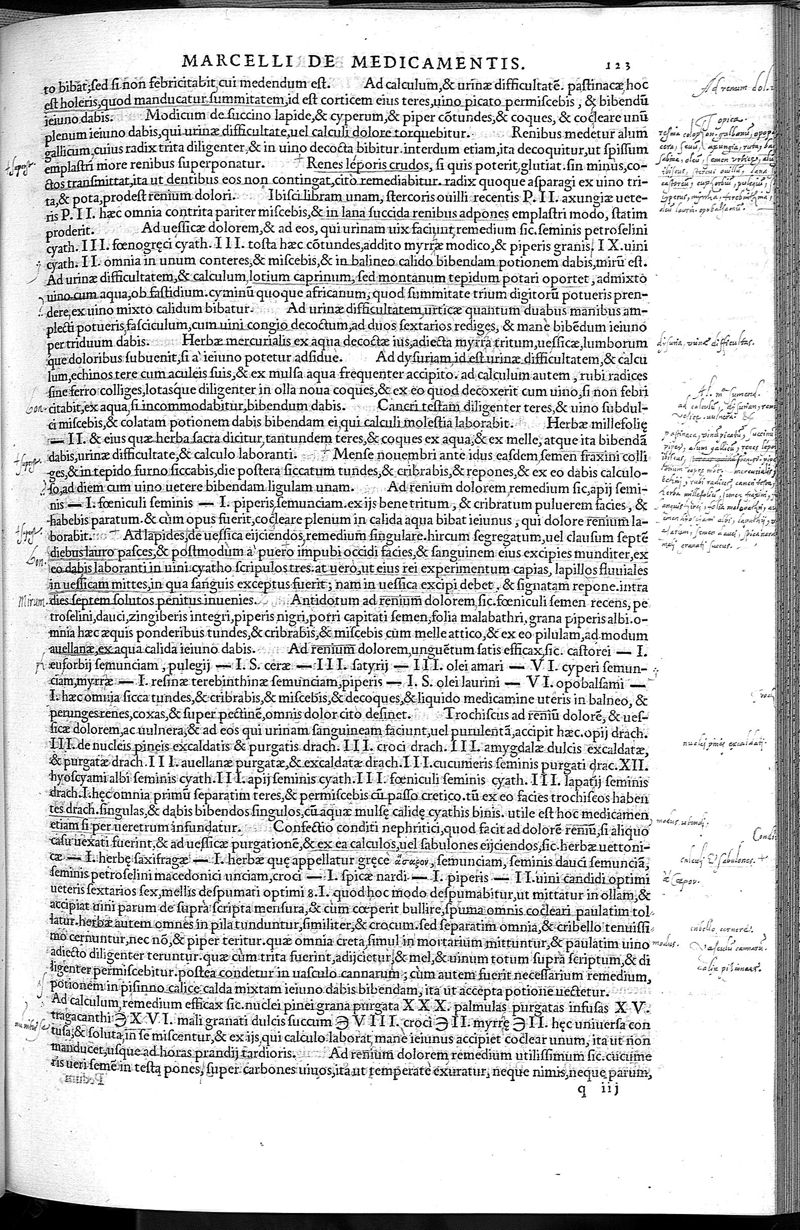 MARCELLI DE MEDICAMENTIS. 123
to bibat; sed si non febricitabit, cui medendum est. Ad calculum, & urinæ difficultatē. pastinacæ, hoc
est holeris, quod manducatur summitatem, id est corticem eius teres, uino picato permiscebis, & bibendū
ieiuno dabis. Modicum de succino lapide, & cyperum, & piper cōtundes, & coques, & cocleare unū
plenum ieiuno dabis, qui urinæ difficultate, uel calculi dolore torquebitur. Renibus medetur alum
gallicum, cuius radix trita diligenter, & in uino decocta bibitur. interdum etiam, ita decoquitur, ut spissum
emplastri more renibus superponatur. Renes leporis crudos, si quis poterit, glutiat. sin minus, co-
ctos transmittat, ita ut dentibus eos non contingat, cito remediabitur. radix quoque asparagi ex uino tri-
ta, & pota, prodest renium dolori. Ibisci libram unam, stercoris ouilli recentis P. II. axungiæ uete-
ris P. II. hæc omnia contrita pariter miscebis, & in lana succida renibus adpones emplastri modo, statim
proderit. Ad uesicæ dolorem, & ad eos, qui urinam uix faciunt, remedium sic. seminis petroselini
cyath. III. fœnogręci cyath. III. tosta hæc cōtundes, addito myrræ modico, & piperis granis, IX. uini
cyath. II. omnia in unum conteres, & miscebis, & in balineo calido bibendam potionem dabis, mirū est.
Ad urinæ difficultatem, & calculum, lotium caprinum, sed montanum tepidum potari oportet, admixto
uino cum aqua, ob fastidium. cyminū quoque africanum, quod summitate trium digitorū potueris pren-
dere, ex uino mixto calidum bibatur. Ad urinæ difficultatem, urticæ quantum duabus manibus am-
plecti potueris fasciculum, cum uini congio decoctum, ad duos sextarios rediges, & mane bibēdum ieiuno
per triduum dabis. Herbæ mercurialis ex aqua decoctæ ius, adiecta myrra tritum, uesicæ, lumborum
que doloribus subuenit, si a ieiuno potetur adsidue. Ad dysuriam, id est urinæ difficultatem, & calcu
lum, echinos tere cum aculeis suis, & ex mulsa aqua frequenter accipito. ad calculum autem, rubi radices
sine ferro colliges, lotasque diligenter in olla noua coques, & ex eo quod decoxerit cum uino, si non febri
citabit, ex aqua, si incommodabitur, bibendum dabis. Cancri testam diligenter teres, & uino subdul-
ci miscebis, & colatam potionem dabis bibendam ei, qui calculi molestia laborabit. Herbæ millefolię
— II. & eius quæ herba sacra dicitur, tantundem teres, & coques ex aqua, & ex melle, atque ita bibendā
dabis, urinæ difficultate, & calculo laboranti. Mense nouembri ante idus easdem, semen fraxini colli
ges, & in tepido furno siccabis, die postera siccatum tundes, & cribrabis, & repones, & ex eo dabis calculo-
so, ad diem cum uino uetere bibendam ligulam unam. Ad renium dolorem remedium sic, apij semi-
nis — I. fœniculi seminis — I. piperis semunciam. ex ijs bene tritum, & cribratum puluerem facies, &
habebis paratum. & cùm opus fuerit, cocleare plenum in calida aqua bibat ieiunus, qui dolore renium la-
borabit. Ad lapides de uesica eijciendos, remedium singulare. hircum segregatum, uel clausum septē
diebus lauro pasces, & postmodum a puero impubi occidi facies, & sanguinem eius excipies munditer, ex
eo dabis laboranti in uino cyatho scripulos tres. at uero, ut eius rei experimentum capias, lapillos fluuiales
in uesicam mittes, in qua sanguis exceptus fuerit; nam in uesica excipi debet, & signatam repone. intra
dies septem solutos penitus inuenies. Antidotum ad renium dolorem, sic. fœniculi semen recens, pe
troselini, dauci, zingiberis integri, piperis nigri, porri capitati semen, folia malabathri, grana piperis albi. o-
mnia hæc æquis ponderibus tundes, & cribrabis, & miscebis cùm melle attico, & ex eo pilulam, ad modum
auellanæ, ex aqua calida ieiuno dabis. Ad renium dolorem, unguētum satis efficax, sic. castorei — I.
euforbij semunciam, pulegij — I. S. ceræ — III. satyrij — III. olei amari — VI. cyperi semun-
ciam, myrræ — I. resinæ terebinthinæ semunciam, piperis — I. S. olei laurini — VI. opobalsami —
I. hæc omnia sicca tundes, & cribrabis, & miscebis, & decoques, & liquido medicamine uteris in balneo, &
perunges renes, coxas, & super pectinē, omnis dolor cito desinet. Trochiscus ad reniū dolorē, & ues-
sicæ dolorem, ac uulnera, & ad eos qui urinam sanguineam faciunt, uel purulentā, accipit hæc. opij drach.
III. de nucleis pineis excaldatis & purgatis drach. III. croci drach. III. amygdalæ dulcis excaldatæ,
& purgatæ drach. III. auellanæ purgatæ, & excaldatæ drach. III. cucumeris seminis purgati drac. XII.
hyoscyami albi seminis cyath. III. apij seminis cyath. III. fœniculi seminis cyath. III. lapatij seminis
drach. I. hęc omnia primū separatim teres, & permiscebis cū passo cretico. tū ex eo facies trochiscos haben
tes drach. singulas, & dabis bibendos singulos, cū aquæ mulsę calidę cyathis binis. utile est hoc medicamen,
etiam si per ueretrum infundatur. Confectio conditi nephritici, quod facit ad dolorē reniū, si aliquo
casu uexati fuerint, & ad uesicæ purgationē, & ex ea calculos, uel sabulones eijciendos, sic. herbæ uettoni-
cæ — I. herbę saxifragæ — I. herbæ quę appellatur gręce ἄσαρον, semunciam, seminis dauci semunciā,
seminis petroselini macedonici unciam, croci — I. spicæ nardi — I. piperis — II. uini candidi optimi
ueteris sextarios sex, mellis despumati optimi s. I. quod hoc modo despumabitur, ut mittatur in ollam, &
accipiat uini parum de supra scripta mensura, & cùm cœperit bullire, spuma omnis cocleari paulatim tol-
latur. herbæ autem omnes in pila tunduntur, similiter, & crocum. sed separatim omnia, & cribello tenuissi-
mo cernuntur, nec nō, & piper teritur. quæ omnia creta, simul in mortarium mittuntur, & paulatim uino
adiecto diligenter teruntur. quæ cùm trita fuerint, adijcietur, & mel, & uinum totum supra scriptum, & di
ligenter permiscebitur. postea condetur in uasculo cannarum; cùm autem fuerit necessarium remedium,
potionem in pisinno calice calda mixtam ieiuno dabis bibendam, ita ut accepta potione uectetur.
Ad calculum, remedium efficax sic. nuclei pinei grana purgata XXX. palmulas purgatas infusas XV.
tragacanthi ℈ XVI. mali granati dulcis succum ℈ VIII. croci ℈ II. myrrę ℈ II. hęc uniuersa con
tusa, & soluta, in se miscentur, & ex ijs, qui calculo laborat, mane ieiunus accipiet coclear unum, ita ut non
manducet, usque ad horas prandij tardioris. Ad renium dolorem remedium utilissimum sic. cucume
ris ueri semē in testa pones, super carbones uiuos, ita ut temperate exuratur, neque nimis, neque parum,
q iij
Mirum
dysuria, urinæ difficultas.
nuclei pinei excaldati
modus.